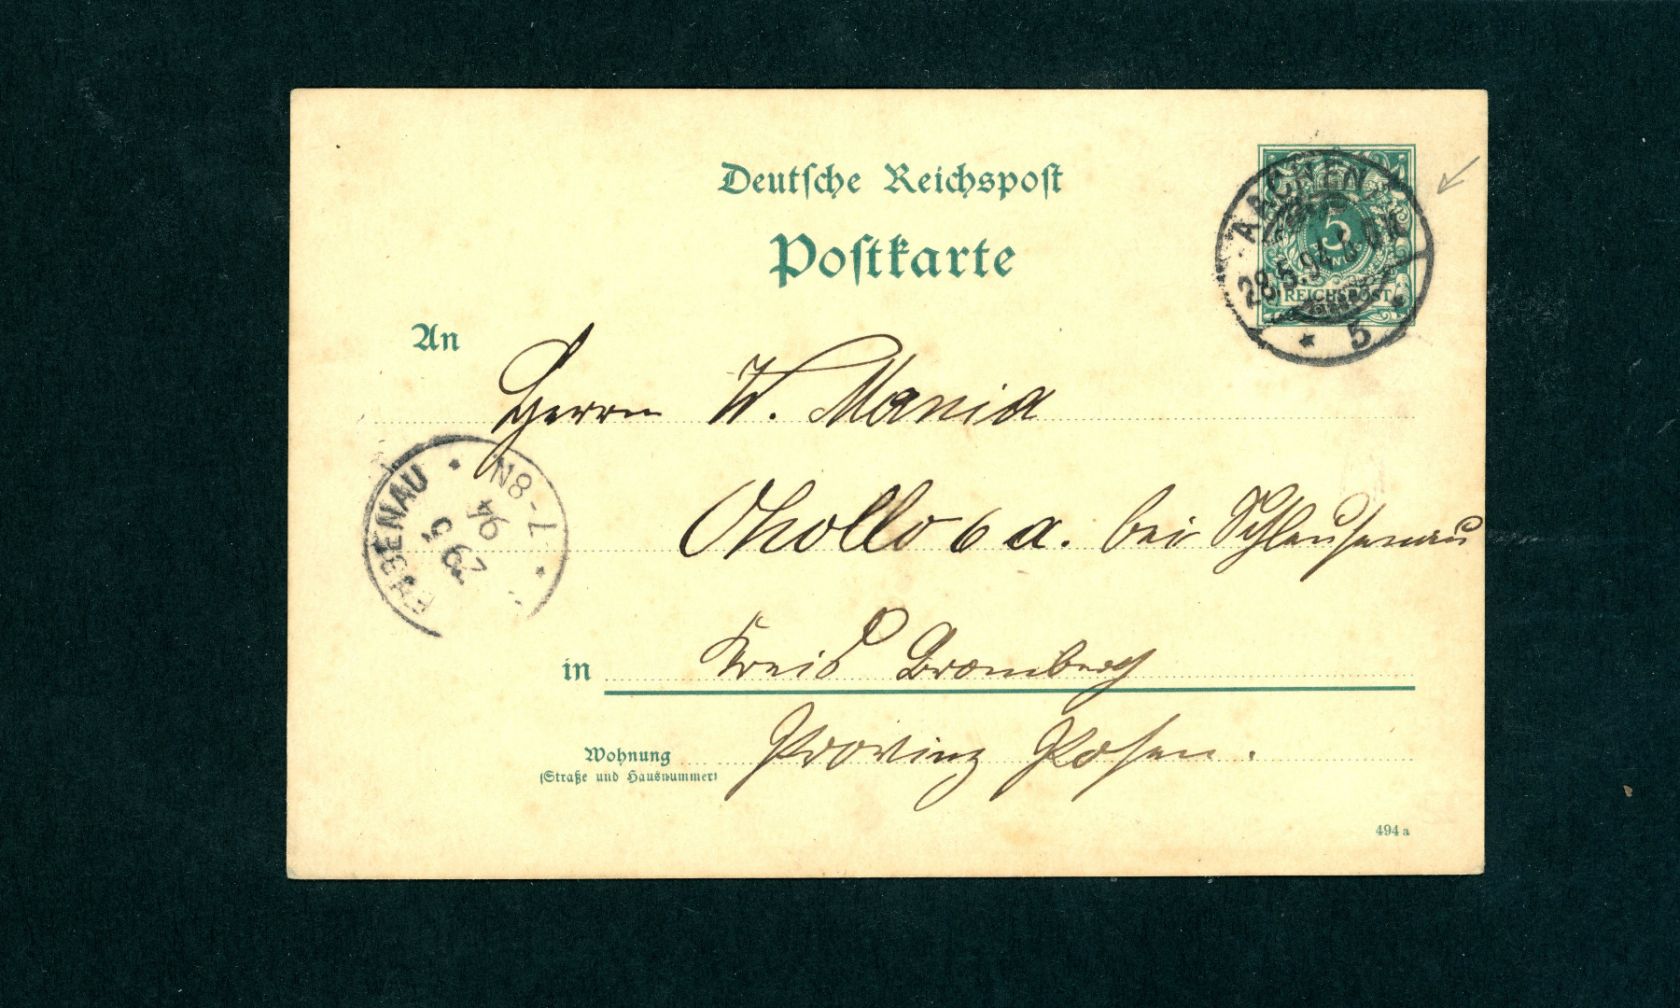 Deutsche Reichspost
Postkarte
AACHEN
28.5.94
5
5
PFENNIG
REICHSPOST
An
Herrn W. Mania
Okollo 6 a. bei Schleusenau
29 5 94
7-8N
in Kreis Bromberg
Wohnung Provinz Posen.
(Straße und Hausnummer)
494 a